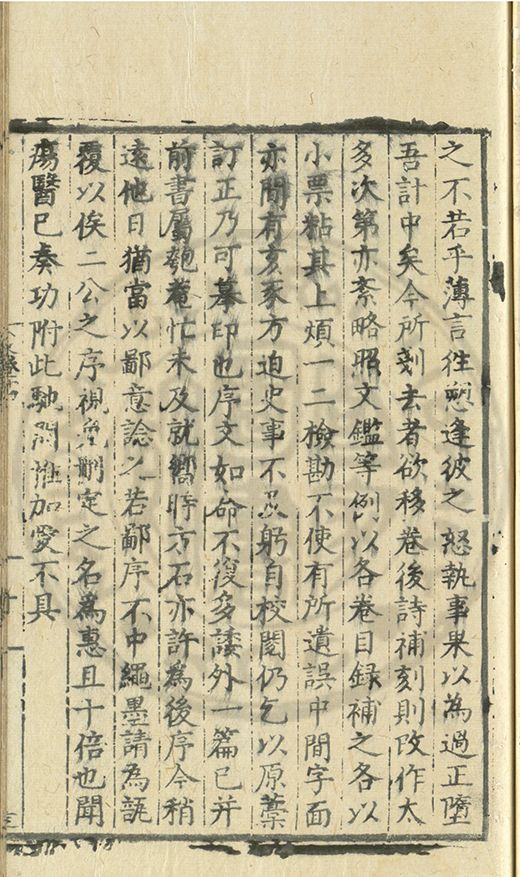 之不若乎薄言徃愬逢彼之怒執事果以為過正墮
吾計中矣今所刻去者欲移卷後詩補刻則改作太
多次第亦紊略照文鑑等例以各卷目録補之各以
小票粘其上煩一二檢勘不使有所遺誤中間字面
亦間有亥豕方迫史事不及躬自校閱仍乞以原藁
訂正乃可摹印也序文如命不復多諉外一篇已并
前書屬匏菴忙未及就嚮時方石亦許為後序今稍
遠他日猶當以鄙意諗之若鄙序不中繩墨請為詆
覆以俟二公之序視刪定之名為惠且十倍也聞
瘍醫已奏功附此馳問惟加愛不具